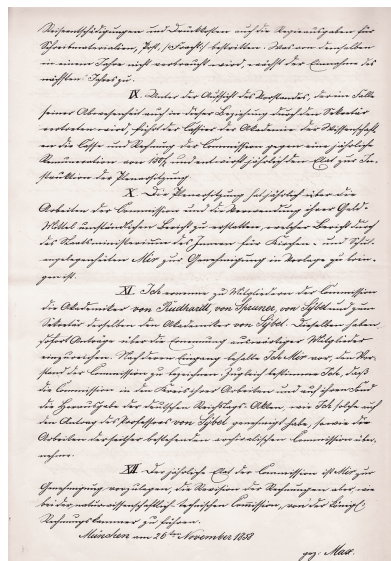 Reiseentschädigungen und Druckkosten auch die Regieausgaben für
Schreibmaterialien, Post, (Fracht) bestritten. Was von denselben
in einem Jahre nicht verbraucht wird, wächst der Einnahme des
nächsten Jahres zu.
IX. Unter der Aufsicht des Vorstandes, der im Falle
seiner Abwesenheit auch in dieser Beziehung durch den Sekretär
vertreten wird, führt der Cassier der Akademie der Wissenschaften
die Casse und Rechnung der Commission gegen eine jährliche
Remuneration von und entwirft jährlich den Etat zur
der Plenarsitzung.
X. Die Plenarsitzung hat jährlich über die
Arbeiten der Commission und die Verwendung ihrer Geld-
Mittel umständlichen Bericht zu erstatten, welcher Bericht durch
das Staatsministerium des Innern für Kirchen- und Schul-
angelegenheiten Mir zur Genehmigung in Vorlage zu brin-
gen ist.
XI. Ich ernenne zu Mitgliedern der Commission
die Akademiker von Rudhardt, von Spruner, von Sybel und zum
Sekretär derselben den Akademiker von Sybel. Dieselben haben
sofort Anträge über die Ernennung auswärtiger Mitglieder
einzureichen. Nach deren Eingang behalte Ich Mir vor, den Vor-
stand der Commission zu bezeichnen. Zugleich bestimme Ich, daß
die Commission in den Kreis ihrer Arbeiten und auf ihren Fond
die Herausgabe der deutschen Reichstags-Akten, wie Ich solche auf
den Antrag des Professors von Sybel genehmigt habe, sowie die
Arbeiten der seither bestehenden archivalischen Commission über-
nehme.
XII. Der jährliche Etat der Commission ist Mir zur
Genehmigung vorzulegen, die Revision der Rechnungen aber, wie
bei der naturwissenschaftlich technischen Commission, von der Königl:
Rechnungskammer zu führen.
München am 26ten November 1858
gez: Max.